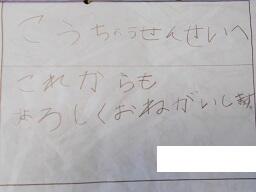 こうちょうせんせいへ
これからも
よろしくおねがいします。